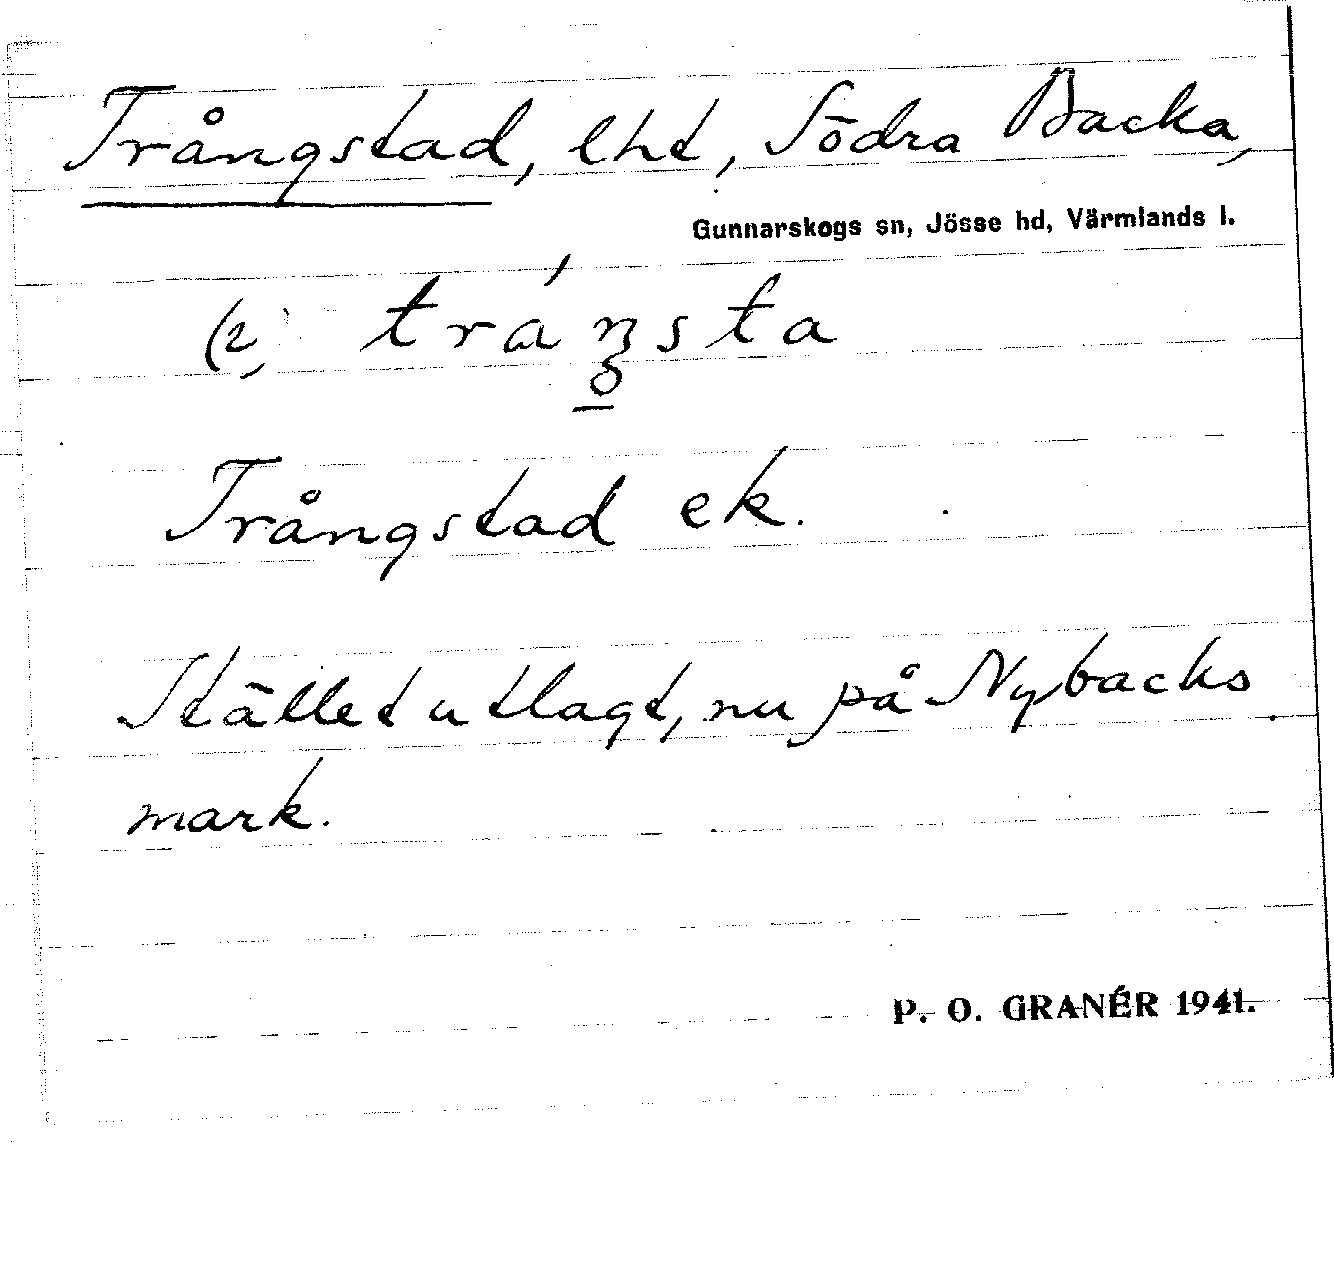 Trångstad, lht, Södra Backa,
Gunnarskogs sn, Jösse hd, Värmlands l.
Trångstad ek.
Stället utlagt, nu på Nybacks
mark.
P. O. GRANÉR 1941.